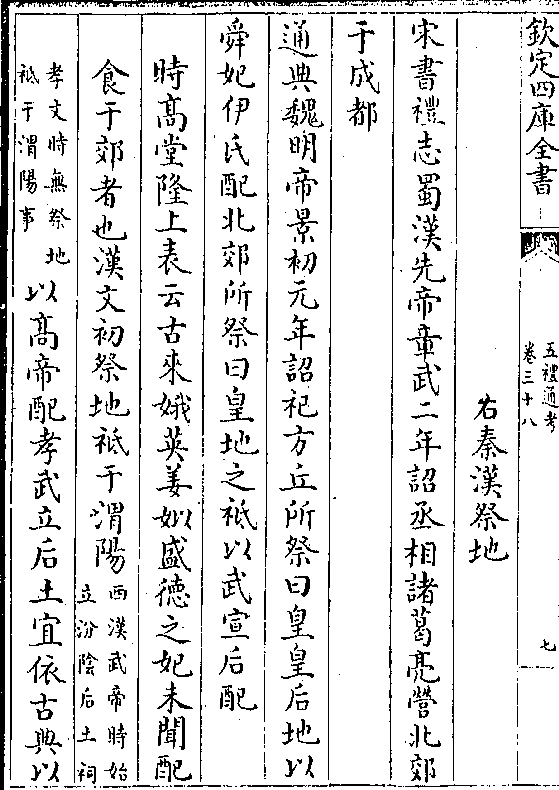 欽定四庫全書
五禮通考
卷三十八
七
右秦漢祭地
宋書禮志蜀漢先帝章武二年詔丞相諸葛亮營北郊
于成都
通典魏明帝景初元年詔祀方丘所祭曰皇皇后地以
舜妃伊氏配北郊所祭曰皇地之祇以武宣后配
時髙堂隆上表云古來娥英姜姒盛德之妃未聞配
食于郊者也漢文初祭地祇于渭陽
西漢武帝時始
立汾陰后土祠
孝文時無祭地
祇于渭陽事
以髙帝配孝武立后土宜依古典以